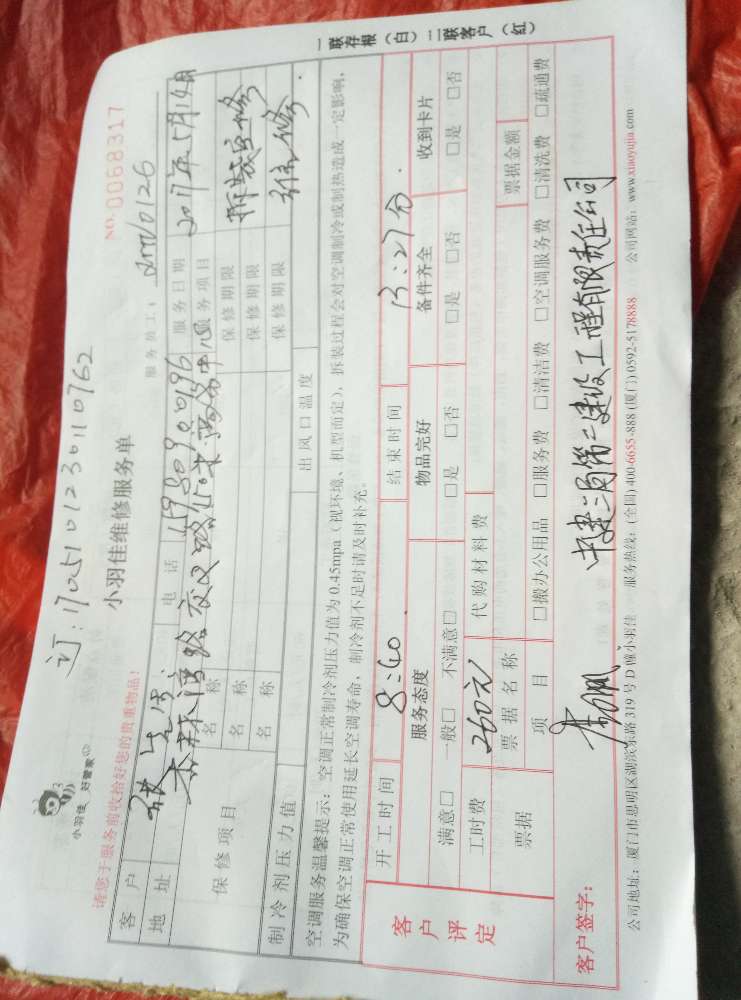 订：170510123010762
小羽佳 好管家
NO. 0068317
小羽佳维修服务单
请您于服务前收拾好您的贵重物品！
服务员工：
客户 电话 服务日期 2017年5月14日
地址 服务项目
保修项目 名称 保修期限
名称 保修期限
名称 保修期限
制冷剂压力值 出风口温度
空调服务温馨提示：空调正常制冷剂压力值为 0.45mpa（视环境、机型而定），拆装过程会对空调制冷或制热造成一定影响，
为确保空调正常使用延长空调寿命，制冷剂不足时请及时补充。
客户评定
开工时间 8:40 结束时间 13:27分
服务态度 物品完好 备件齐全 收到卡片
满意□ 一般□ 不满意□ □是 □否 □是 □否 □是 □否
工时费 260元 代购材料费
票据 票据名称 票据金额
项目 □搬办公用品 □服务费 □清洁费 □空调服务费 □清洗费 □疏通费
客户签字： 中建三局第二建设工程有限责任公司
公司地址：厦门市思明区湖滨东路 319 号 D 幢小羽佳 服务热线：(全国) 400-6655-888 (厦门) 0592-5178888 公司网站：www.xiaoyujia.com
一联存根（白）二联客户（红）